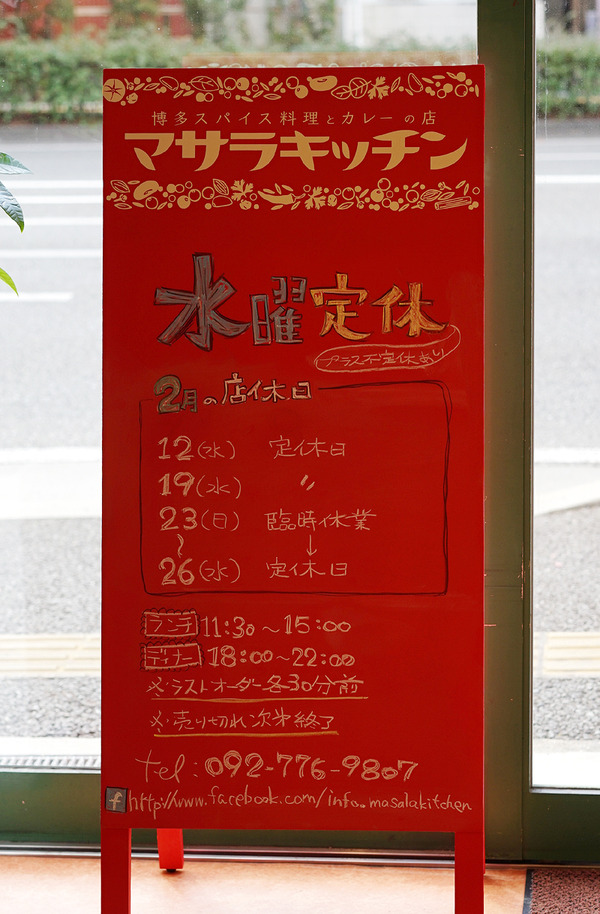 博多スパイス料理とカレーの店
マサラキッチン
水曜定休
プラス不定休あり
2月の店休日
12(水) 定休日
19(水) 〃
23(日) 臨時休業
〜 ↓
26(水) 定休日
ランチ 11:30〜15:00
ディナー 18:00〜22:00
※ラストオーダー各30分前
※売り切れ次第終了
tel:092-776-9807
f http://www.facebook.com/info.masalakitchen